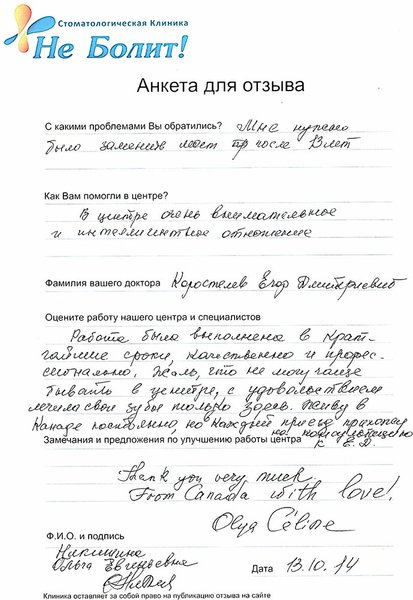 Стоматологическая Клиника
Не Болит!
Анкета для отзыва
С какими проблемами Вы обратились? Мне нужно
было заменить мост после 13 лет
Как Вам помогли в центре?
В центре очень внимательное
и интеллигентное отношение
Фамилия вашего доктора Коростелев Егор Дмитриевич
Оцените работу нашего центра и специалистов
Работа была выполнена в крат-
чайшие сроки, качественно и профес-
сионально. Жаль, что не могу чаще
бывать в центре, с удовольствием
лечила свои зубы только здесь. Живу в
Канаде постоянно, но каждый приезд прихожу
на консультацию
Замечания и предложения по улучшению работы центра к Е.Д.
Thank you very much
From Canada with love!
Olga Céline
Ф.И.О. и подпись
Никишина
Ольга Евгеньевна
Дата 13.10.14
Клиника оставляет за собой право на публикацию отзыва на сайте